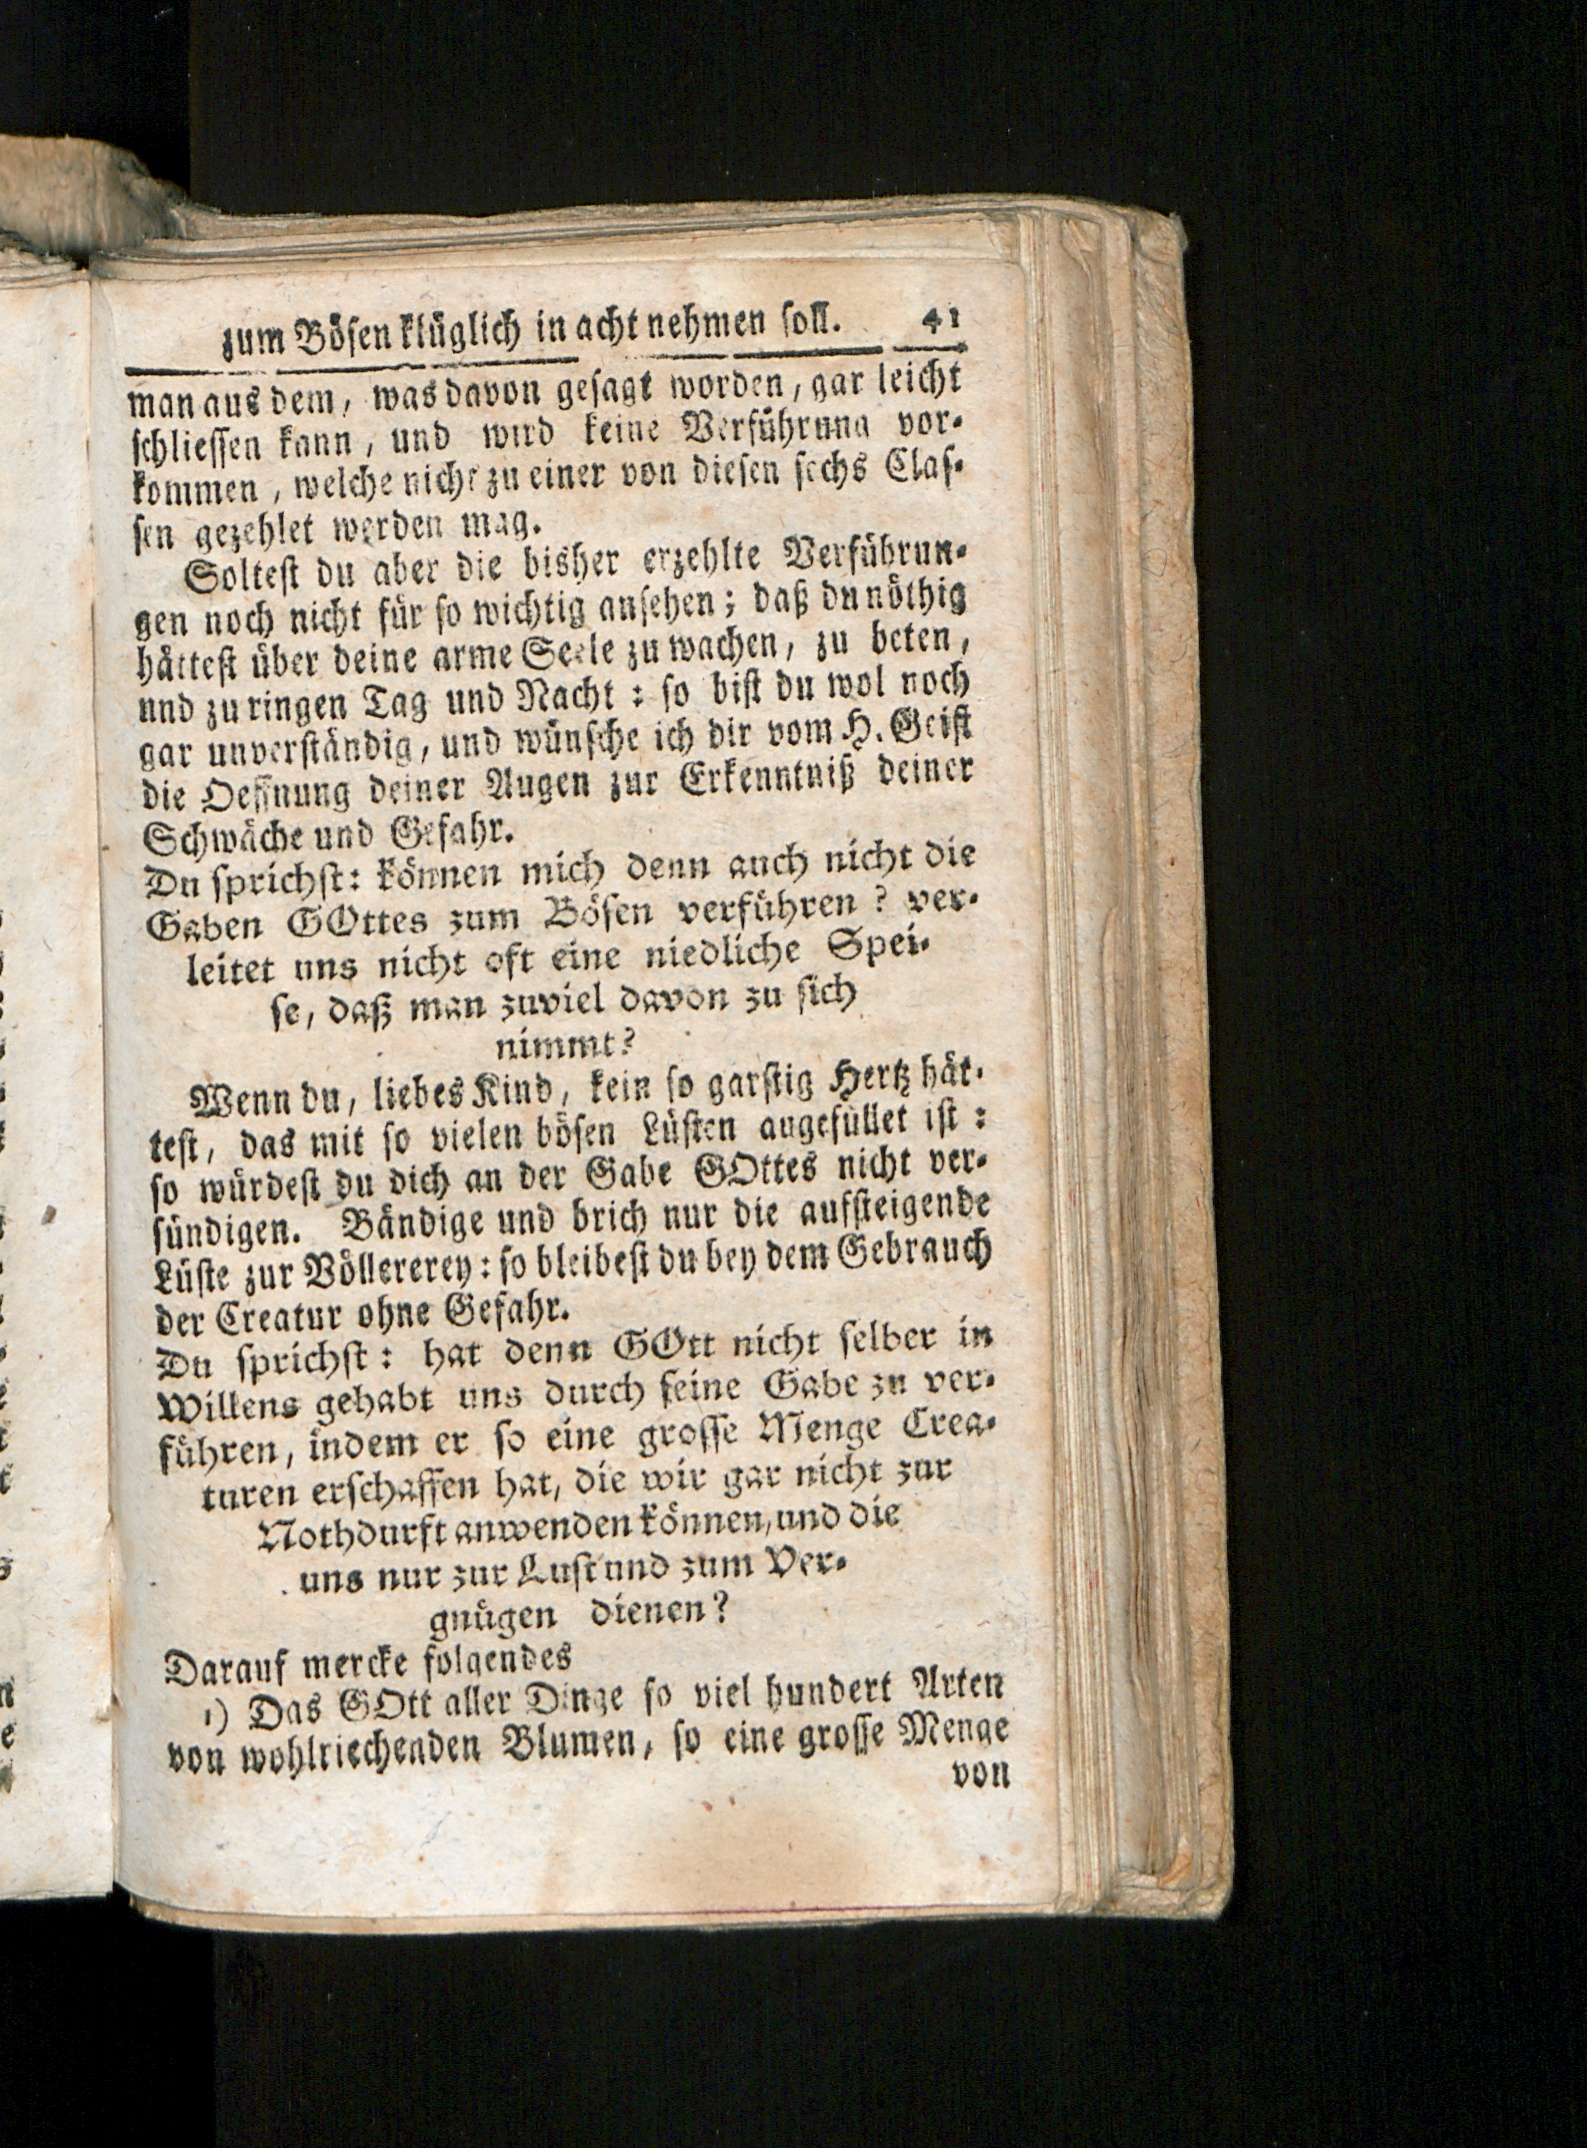 zum Bösen klüglich in acht nehmen soll. 41
man aus dem, was davon gesagt worden, gar leicht
schliessen kann, und wird keine Verführung vor-
kommen, welche nicht zu einer von diesen sechs Clas-
sen gezehlet werden mag.
Soltest du aber die bisher erzehlte Verführun-
gen noch nicht für so wichtig ansehen; daß du nöthig
hättest über deine arme Seele zu wachen, zu beten,
und zu ringen Tag und Nacht: so bist du wol noch
gar unverständig, und wünsche ich dir vom H. Geist
die Oeffnung deiner Augen zur Erkenntniß deiner
Schwäche und Gefahr.
Du sprichst: können mich denn auch nicht die
Gaben GOttes zum Bösen verführen? ver-
leitet uns nicht oft eine niedliche Spei-
se, daß man zuviel davon zu sich
nimmt?
Wenn du, liebes Kind, kein so garstig Hertz hät-
test, das mit so vielen bösen Lüsten angefüllet ist:
so würdest du dich an der Gabe GOttes nicht ver-
sündigen. Bändige und brich nur die aufsteigende
Lüste zur Völlererey: so bleibest du bey dem Gebrauch
der Creatur ohne Gefahr.
Du sprichst: hat denn GOtt nicht selber in
Willens gehabt uns durch seine Gabe zu ver-
führen, indem er so eine grosse Menge Crea-
turen erschaffen hat, die wir gar nicht zur
Nothdurft anwenden können, und die
uns nur zur Lust und zum Ver-
gnügen dienen?
Darauf mercke folgendes
1) Das GOtt aller Dinge so viel hundert Arten
von wohlriechenden Blumen, so eine grosse Menge
von